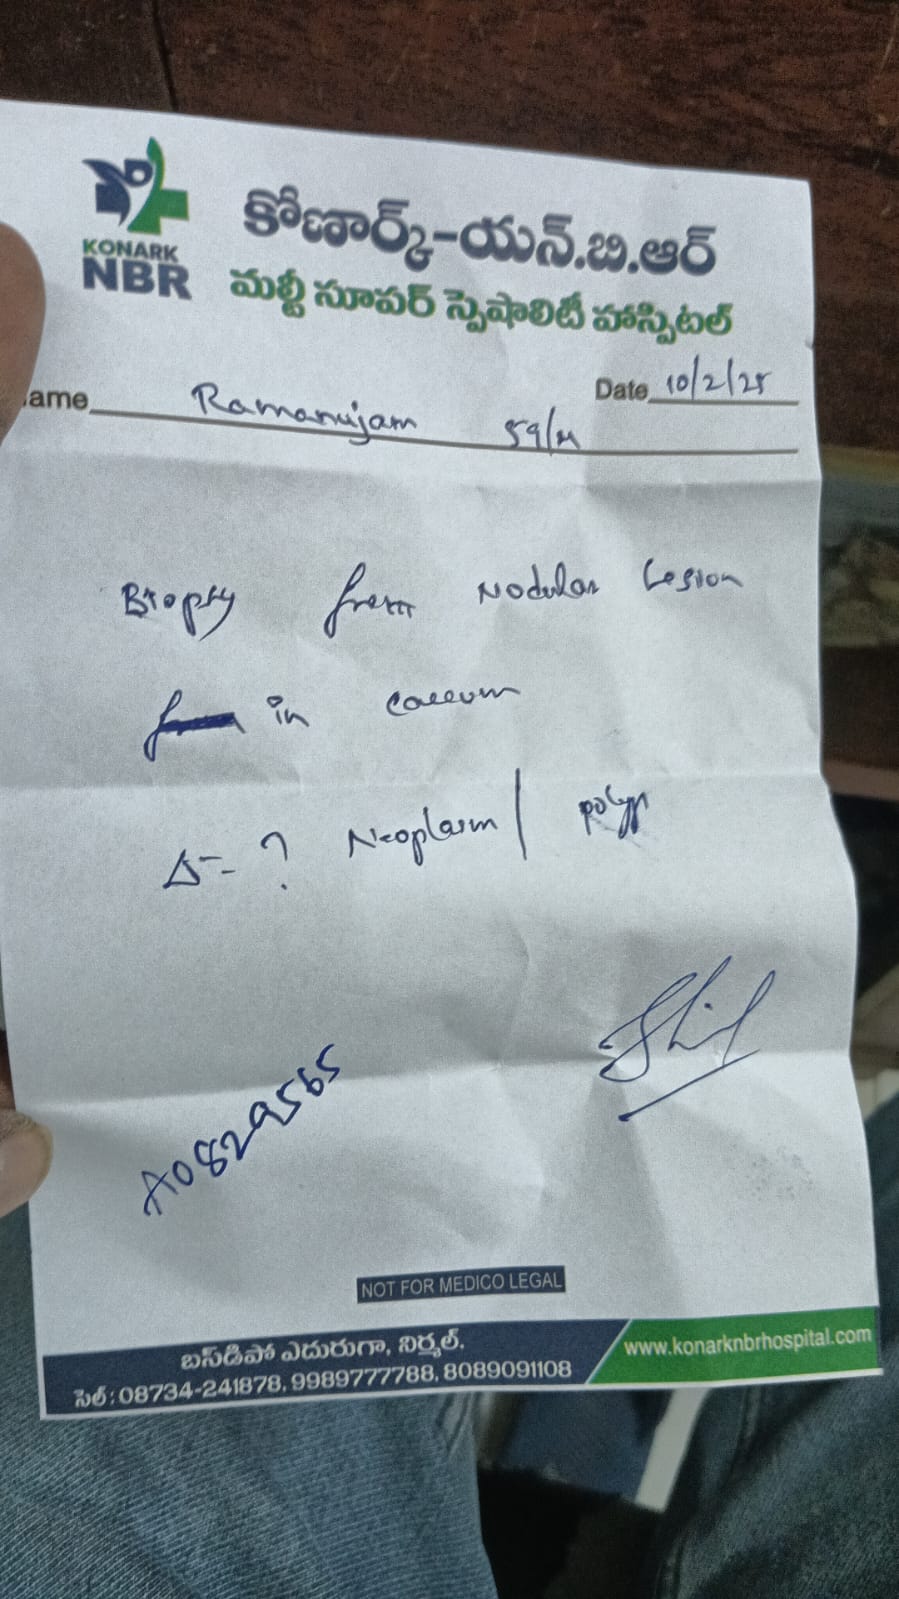 KONARK
NBR
కోణార్క్-యన్.బి.ఆర్
మల్టీ సూపర్ స్పెషాలిటీ హాస్పిటల్
ame Ramanujam 59/M Date 10/2/25
Biopsy from Nodular Lesion
in caecum
Δ- ? Neoplasm / polyp
A0829565
NOT FOR MEDICO LEGAL
బస్‌డిపో ఎదురుగా, నిర్మల్.
సెల్ : 08734-241878, 9989777788, 8089091108
www.konarknbrhospital.com